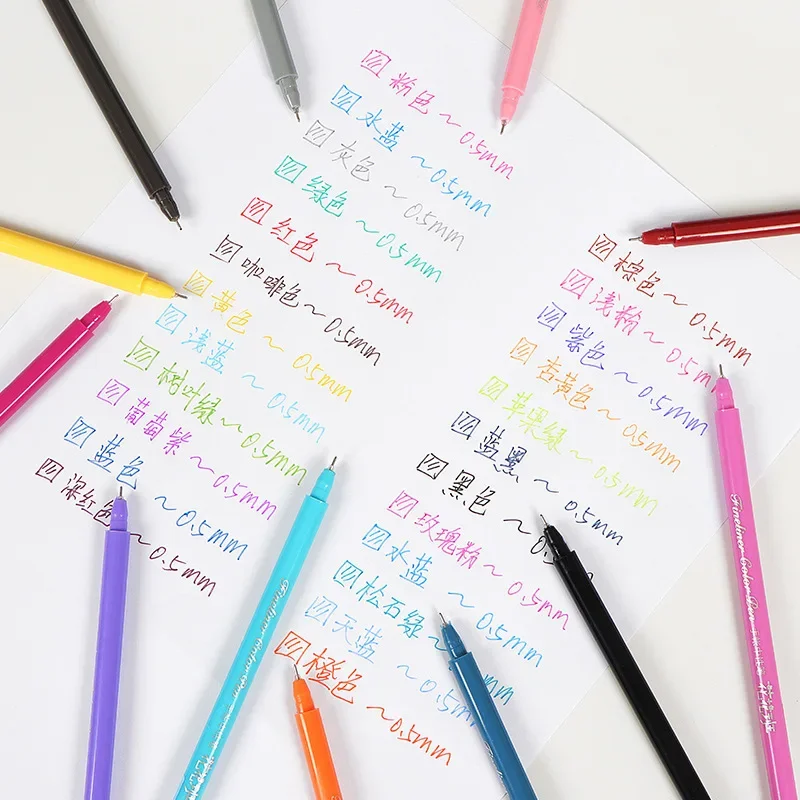 粉色~0.5mm
水蓝~0.5mm
灰色~0.5mm
绿色~0.5mm
红色~0.5mm
咖啡色~0.5mm
黄色~0.5mm
浅蓝~0.5mm
树叶绿~0.5mm
葡萄紫~0.5mm
蓝色~0.5mm
深红色~0.5mm
棕色~0.5mm
浅粉~0.5mm
紫色~0.5mm
杏黄色~0.5mm
苹果绿~0.5mm
蓝黑~0.5mm
黑色~0.5mm
玫瑰粉~0.5mm
水蓝~0.5mm
松石绿~0.5mm
天蓝~0.5mm
橙色~0.5mm
Fineliner Color Pen
Fineliner Color Pen